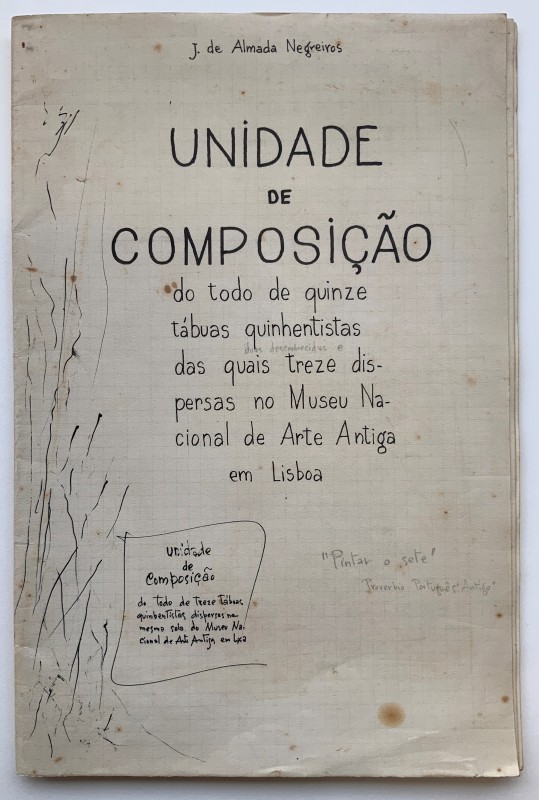 J. de Almada Negreiros
UNIDADE
DE
COMPOSIÇÃO
do todo de quinze
tábuas quinhentistas
duas desconhecidas e
das quais treze dis-
persas no Museu Na-
cional de Arte Antiga
em Lisboa
unidade
de
composição
do Todo de Treze Tábuas
quinhentistas dispersas na
mesma sala do Museu Na-
cional de Arte Antiga em Lxa
"Pintar o sete"
Proverbio Português Antigo